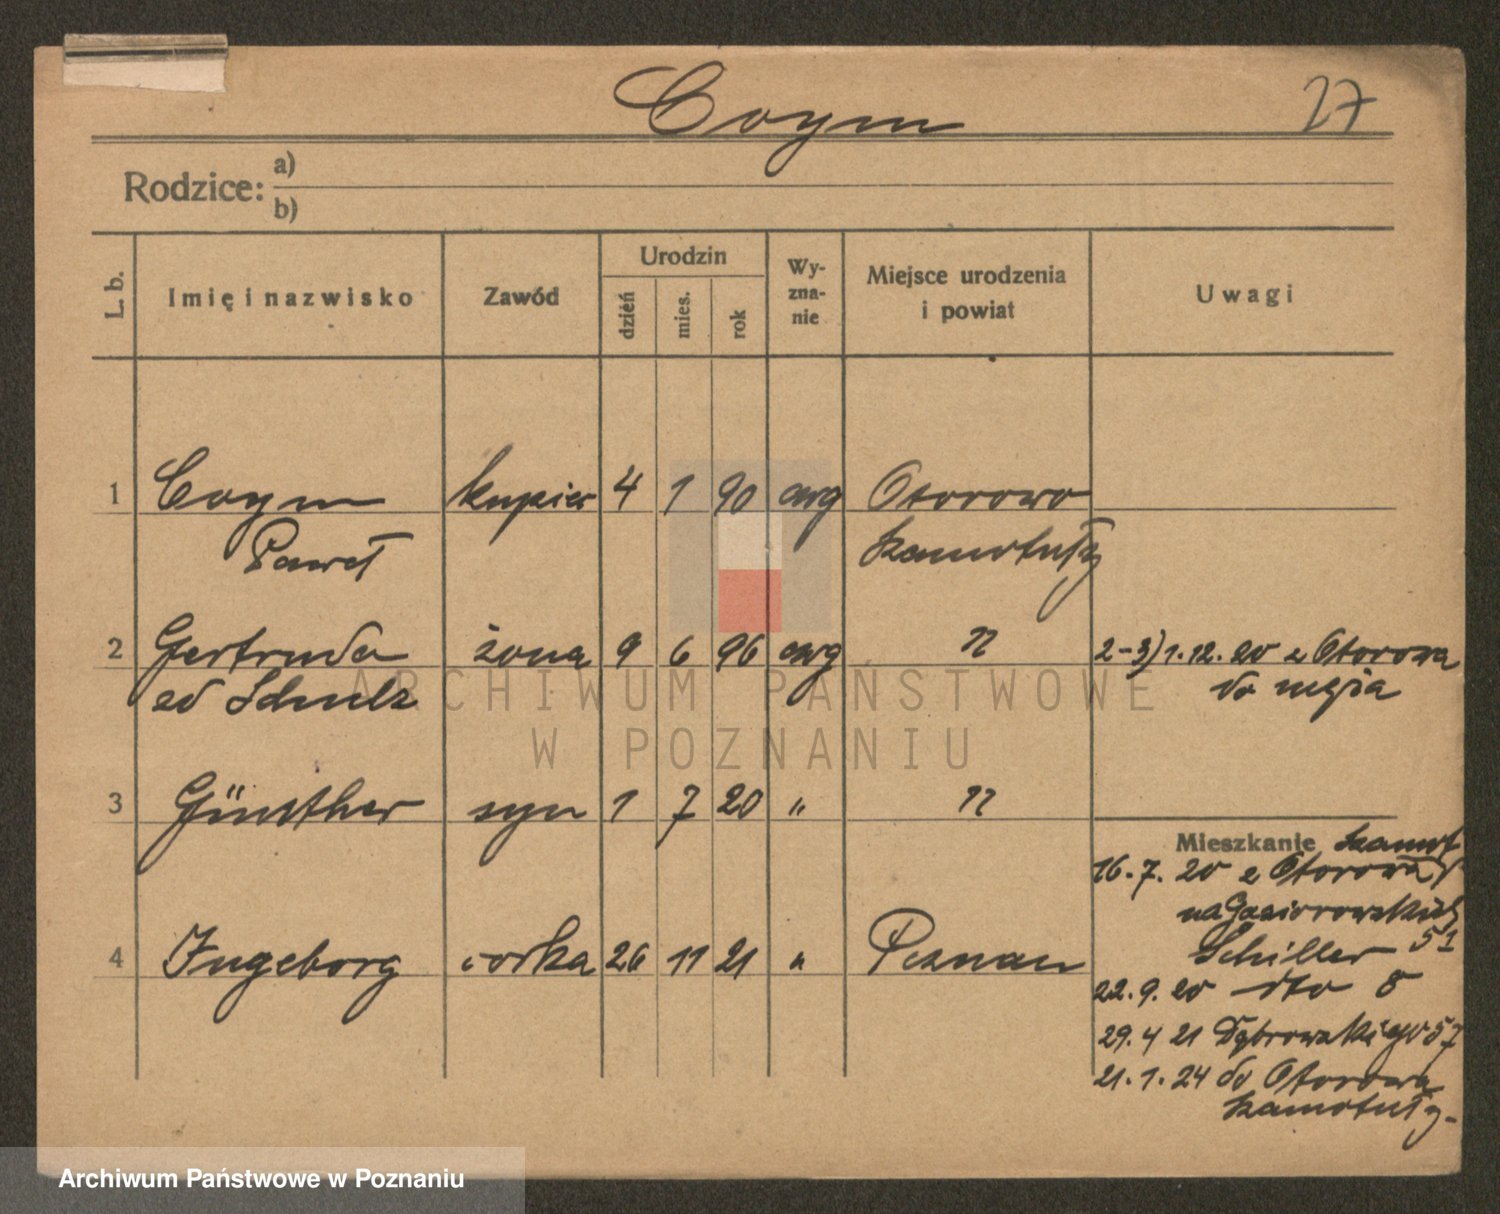 Coym
27
Rodzice: a)
b)
L. b.
Imię i nazwisko
Zawód
Urodzin
dzień
mies.
rok
Wy-
zna-
nie
Miejsce urodzenia
i powiat
Uwagi
1 Coym kupiec 4 1 90 ewg Otorowo
Paweł Szamotuły
2 Gertruda żona 9 6 96 ewg " 2-3) 1.12.20 z Otorowa
ed Schulz do męża
3 Günther syn 1 7 20 " "
4 Ingeborg córka 26 11 21 " Poznań
Mieszkanie Szamot
16.7.20 z Otorowa
na Gąsiorowskich
Schiller 51
22.9.20 dto 8
29.4 21 Dąbrowskiego 57
21.1.24 do Otorowa
Szamotuły.
ARCHIWUM PAŃSTWOWE
W POZNANIU
Archiwum Państwowe w Poznaniu